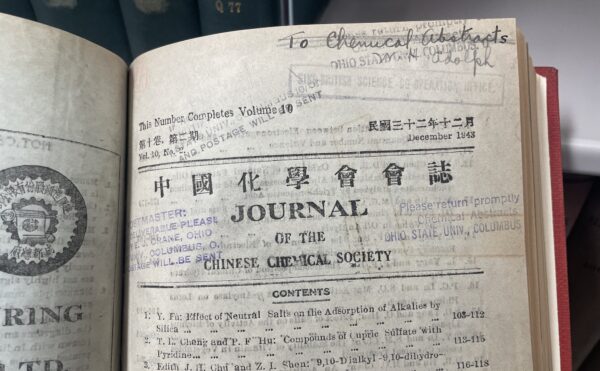 Q 77
To Chemical Abstracts
OHIO STATE UNIV., COLUMBUS.
Adolph
SINO-BRITISH SCIENCE CO-OPERATION OFFICE
This Number Completes Volume 10
第十卷，第二期
Vol. 10, No. 2
AND POSTAGE WILL BE SENT
民國三十二年十二月
December 1943
中國化學會會誌
JOURNAL
OF THE
CHINESE CHEMICAL SOCIETY
POSTMASTER:
PLEASE
CRANE, OHIO
COLUMBUS, O.
WILL BE SENT
Please return promptly
Chemical Abstracts
OHIO STATE UNIV., COLUMBUS
CONTENTS
1. Y. Fu: Effect of Neutral Salts on the Adsorption of Alkalies by
Silica .. .. .. .. .. .. 103-112
2. T. L. Chang and P. F. Hu: Compounds of Cupric Sulfate with
Pyridine.. .. .. .. .. .. 112-115
3. Edith J. H. Chu and Z. I. Shen: 9,10-Dialkyl-9,10-dihydro-
116-118
RING
LTD.